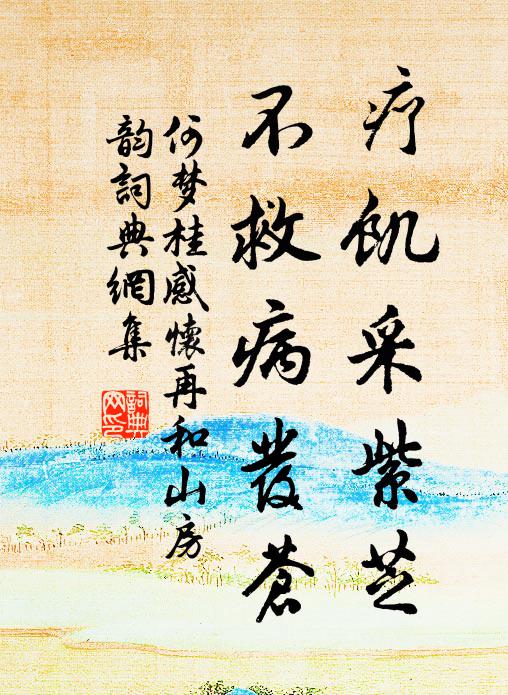 疗饥采紫芝
不救病发苍
何梦桂感怀再和山房
韵詞典網集
詞典
网印